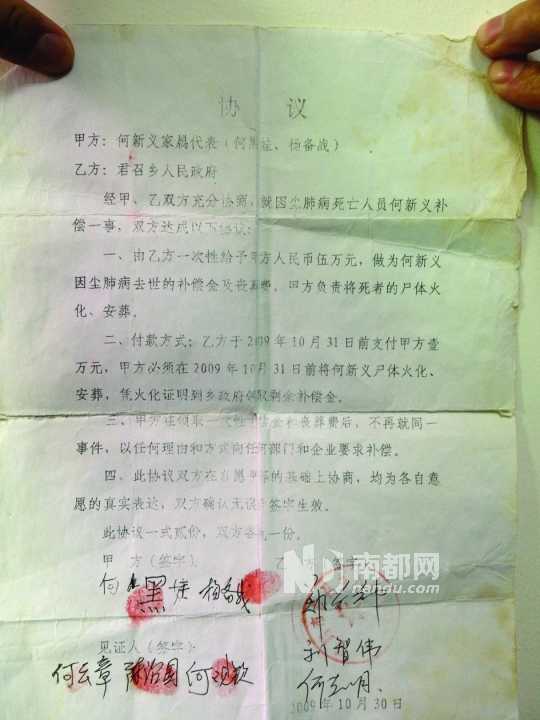 协 议
甲方：何新义家属代表（何黑 、杨备战）
乙方：君召乡人民政府
经甲、乙双方充分协商，就因尘肺病死亡人员何新义补
偿一事，双方达成以下协议：
一、由乙方一次性给予甲方人民币伍万元，做为何新义
因尘肺病去世的补偿金及丧葬费。甲方负责将死者的尸体火
化、安葬。
二、付款方式：乙方于2009年10月31日前支付甲方壹
万元，甲方必须在2009年10月31日前将何新义尸体火化、
安葬，凭火化证明到乡政府领取剩余补偿金。
三、甲方在领取一次性补偿金和丧葬费后，不再就同一
事件，以任何理由和方式向任何部门和企业要求补偿。
四、此协议双方在自愿平等的基础上协商，均为各自意
愿的真实表达，双方确认无误 签字生效。
此协议一式贰份，双方各执一份。
甲 方（签字）： 乙 方（签字）
何 黑 杨备战
南都网
nandu.com
见证人（签字）：
刘智伟
何云章 陈治国 何
何 明
2009年10月30日